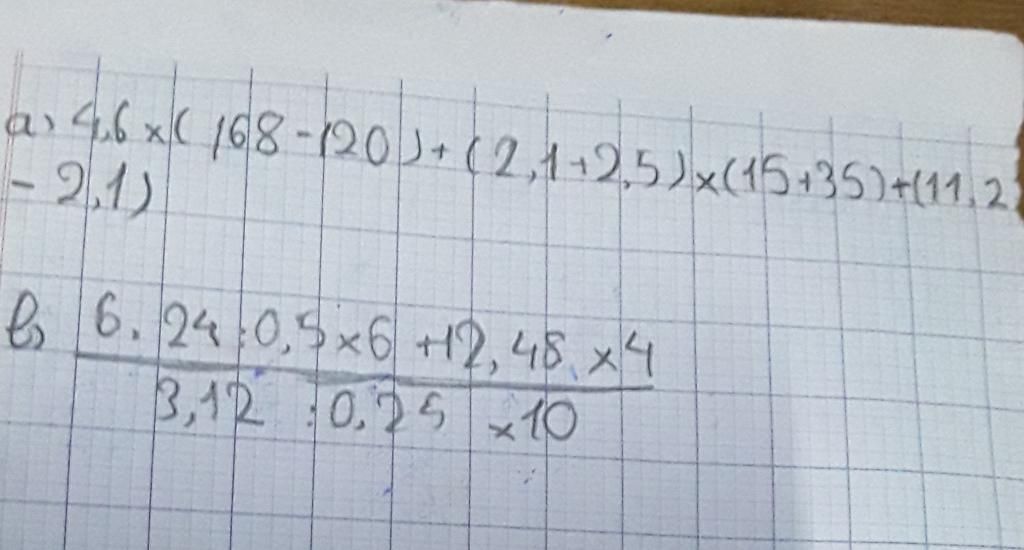 a, 4,6 x ( 168 - 120 ) + ( 2,1 + 2,5 ) x ( 15 + 35 ) + ( 11,2
- 2,1 )
b, 6,24 : 0,5 x 6 + 12,48 x 4
3,12 : 0,25 x 10